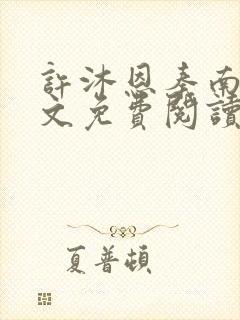 許沐恩秦南
文免費閱讀
夏普頓